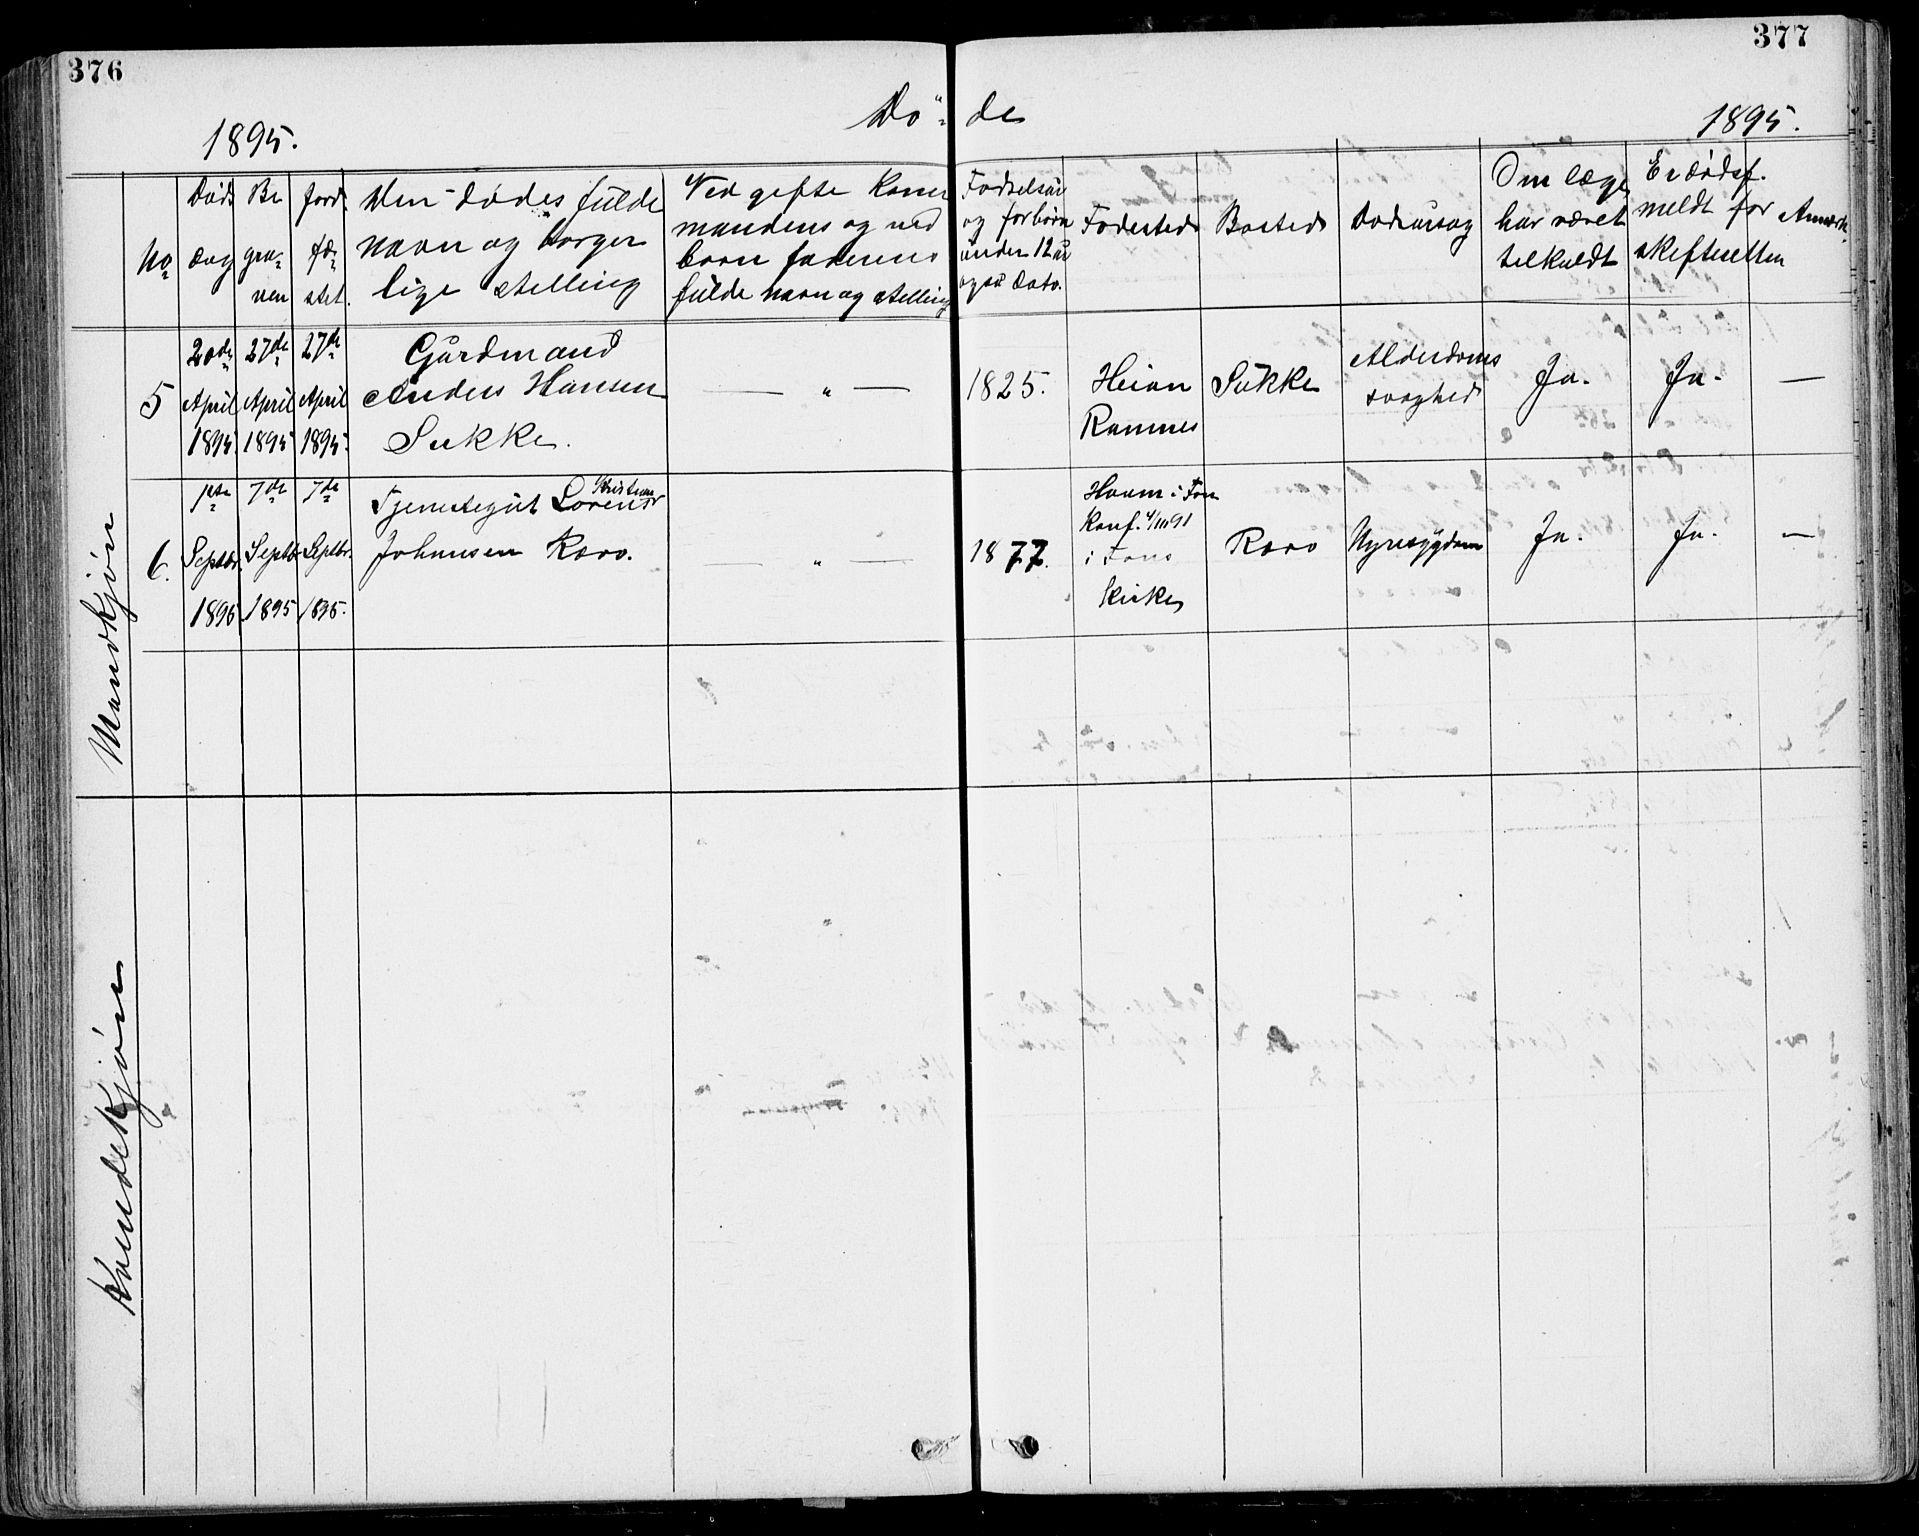 376
377
Dö- de
1895.
1895.
No
Døds dag
Be gra- ven
Jord fæ- stet.
Den dødes fulde navn og borger lige stelling
Ved gifte Koner mandens og ved børn faderens fulde navn og stelling
Fødselsår og for børn under 12 år også dato.
Fødested
Bosted
Dødsårsag
Om læge har været tilkaldt
Er dødsf. meldt for skifteretten
Anmærk.
Mandkjøn
5
20de April 1895.
27de April 1895
27de April 1895.
Gårdmand
Anders Hansen
Sukke.
— " —
1825.
Heian
Ramnes
Sukke
Alderdoms
svaghed
Ja.
Ja.
—
6.
1ste Septbr. 1895
7de Septbr. 1895
7de Septbr. 1895.
Tjenestegut Lorents Kristian
Johansen Røro.
— " —
1877.
Haum i Fon
Konf. 4/10 91
i Fons
Kirke
Røro
Nyresygdom
Ja.
Ja.
—
Kvindekjøn